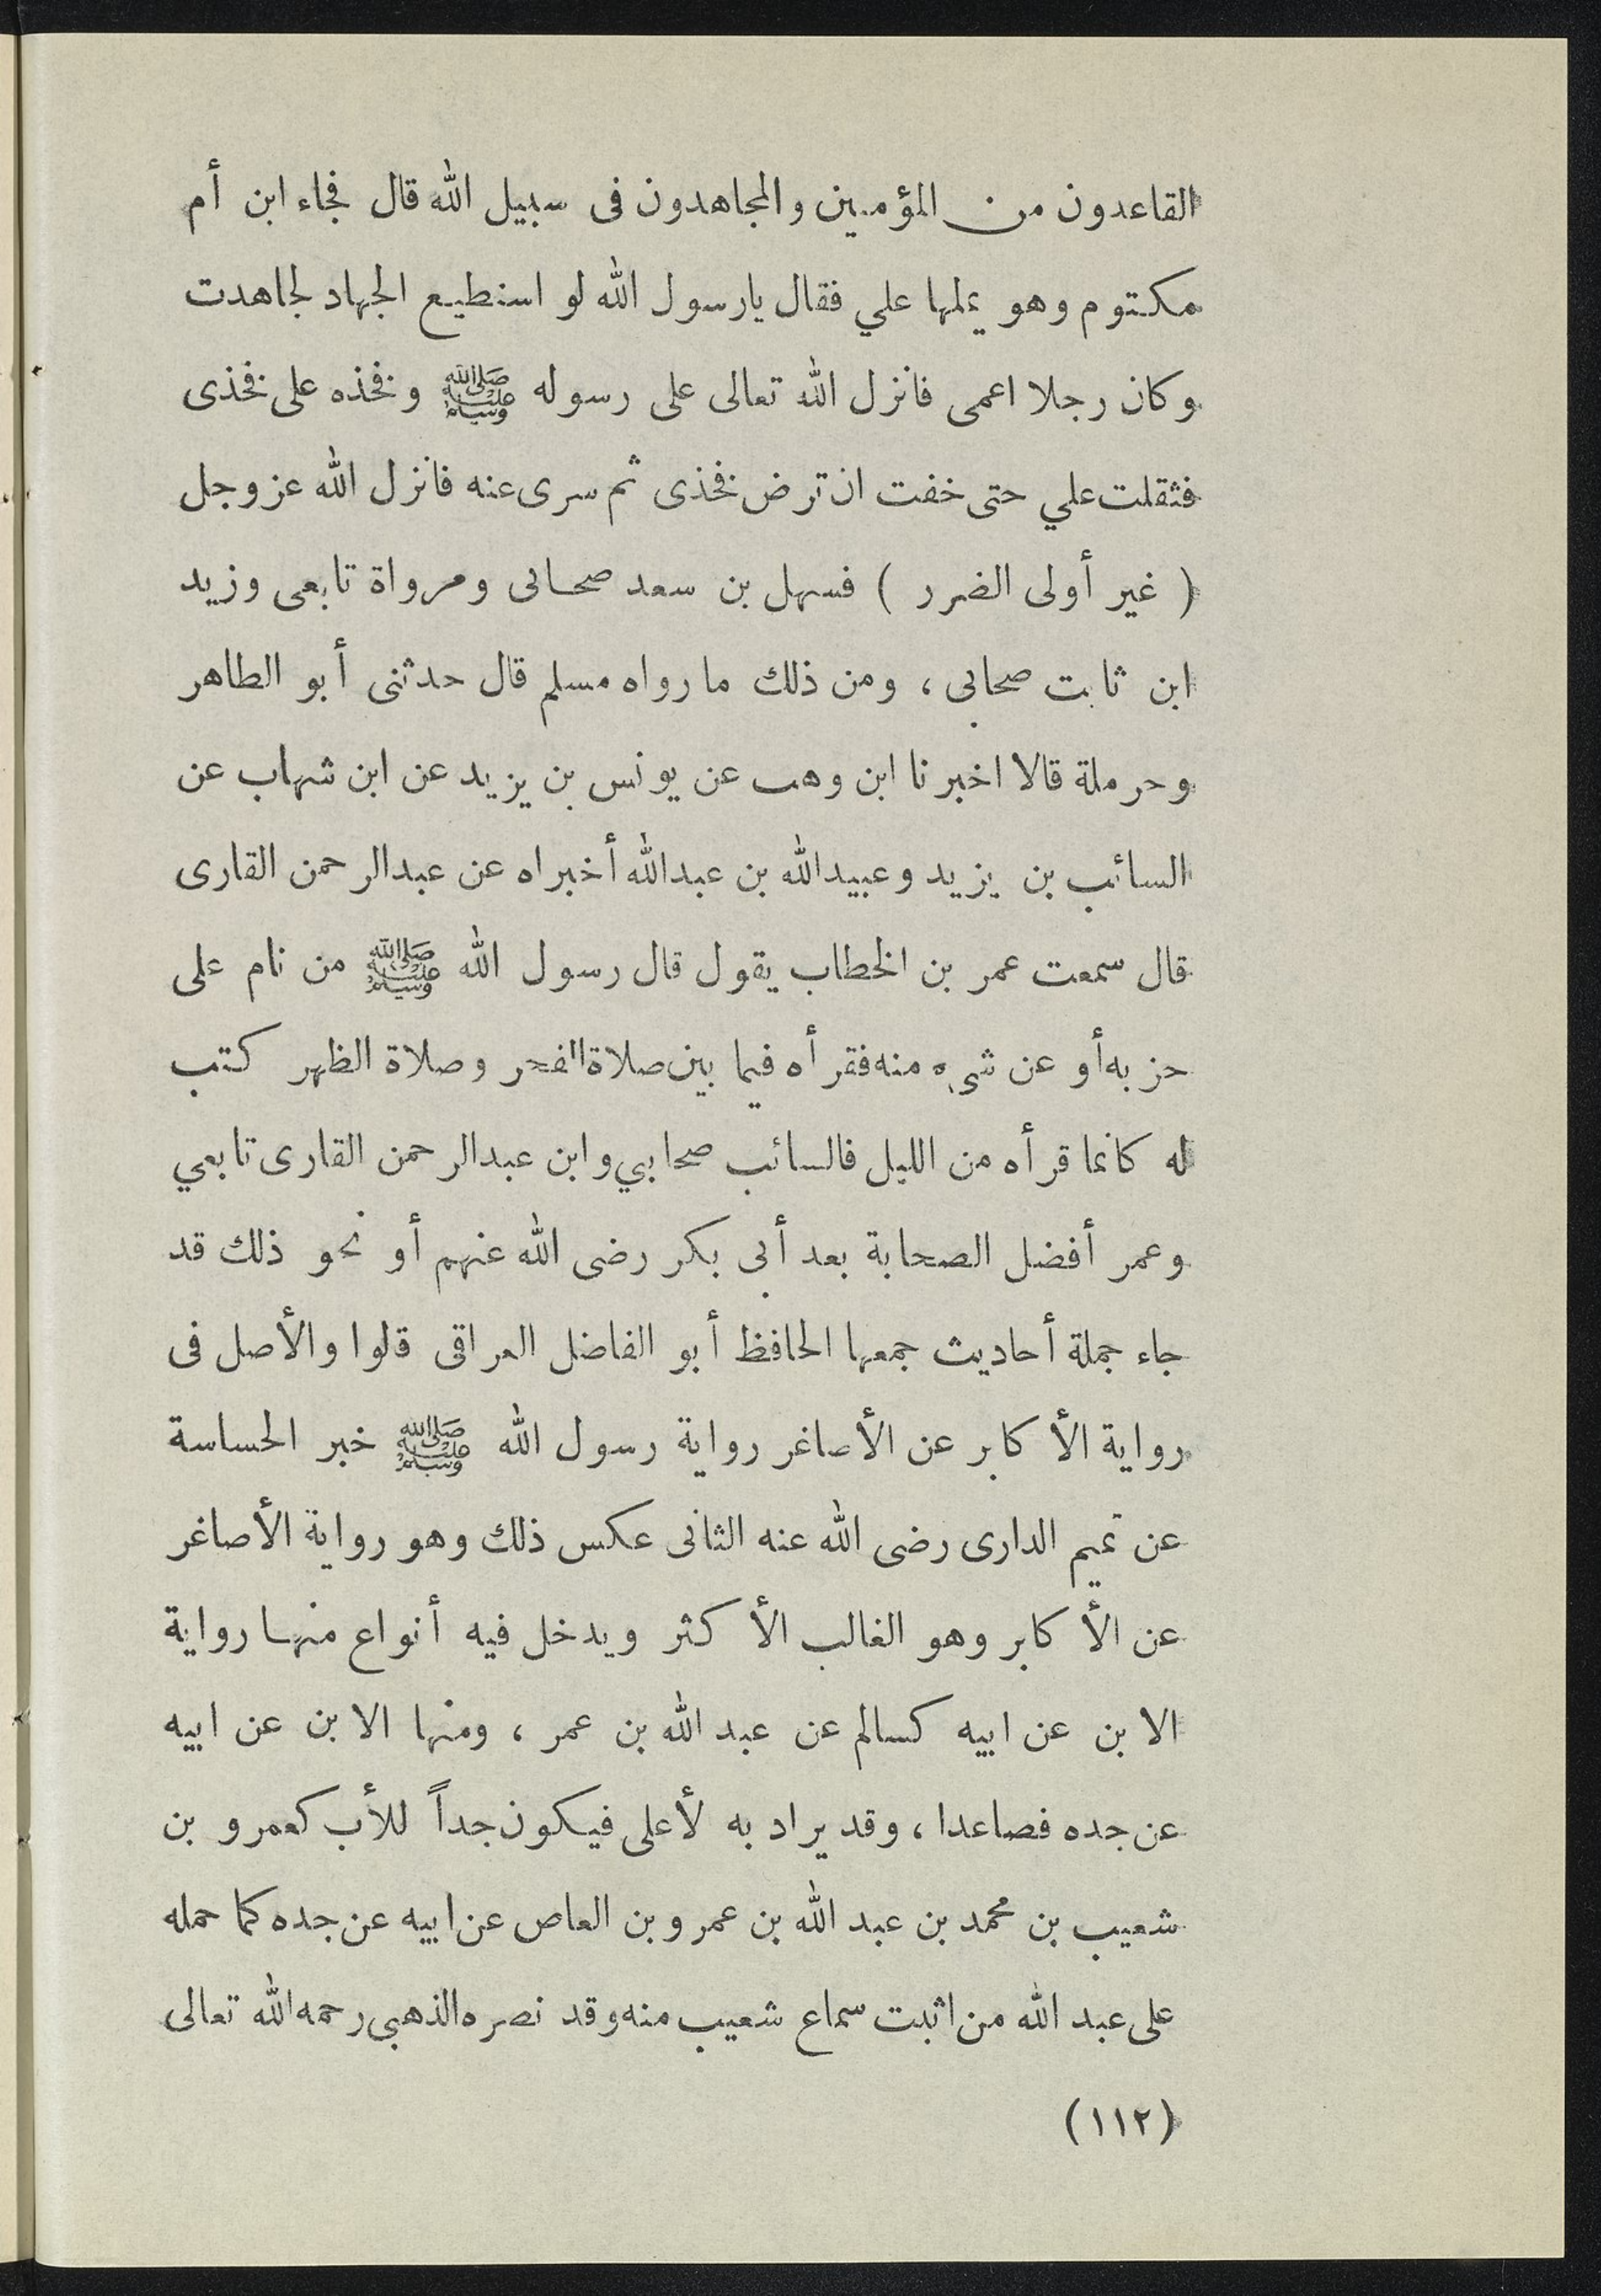 القاعدون من المؤمنين والمجاهدون فى سبيل الله قال فجاء ابن أم
مكتوم وهو يملها علي فقال يارسول الله لو استطيع الجهاد لجاهدت
وكان رجلا اعمى فانزل الله تعالى على رسوله ﷺ وفخذه على فخذى
فثقلت علي حتى خفت ان ترض فخذى ثم سرى عنه فانزل الله عز وجل
( غير أولى الضرر ) فسهل بن سعد صحابى ومرواة تابعى وزيد
ابن ثابت صحابى ، ومن ذلك ما رواه مسلم قال حدثنى أبو الطاهر
وحرملة قالا اخبرنا ابن وهب عن يونس بن يزيد عن ابن شهاب عن
السائب بن يزيد وعبيدالله بن عبدالله أخبراه عن عبدالرحمن القارى
قال سمعت عمر بن الخطاب يقول قال رسول الله ﷺ من نام على
حزبه أو عن شىء منه فقرأه فيما بين صلاة الفجر وصلاة الظهر كتب
له كانما قرأه من الليل فالسائب صحابي وابن عبدالرحمن القارى تابعي
وعمر أفضل الصحابة بعد أبى بكر رضى الله عنهم أو نحو ذلك قد
جاء جملة أحاديث جمعها الحافظ أبو الفاضل العراقى قلوا والأصل فى
رواية الأكابر عن الأصاغر رواية رسول الله ﷺ خبر الحساسة
عن تميم الدارى رضى الله عنه الثانى عكس ذلك وهو رواية الأصاغر
عن الأكابر وهو الغالب الأكثر ويدخل فيه أنواع منها رواية
الابن عن ابيه كسالم عن عبد الله بن عمر ، ومنها الابن عن ابيه
عن جده فصاعدا ، وقد يراد به لأعلى فيكون جداً للأب كعمرو بن
شعيب بن محمد بن عبد الله بن عمرو بن العاص عن ابيه عن جده كما حمله
على عبد الله من اثبت سماع شعيب منه وقد نصره الذهبى رحمه الله تعالى
(١١٢)